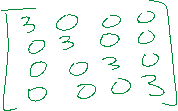 3 0 0 0
0 3 0 0
0 0 3 0
0 0 0 3